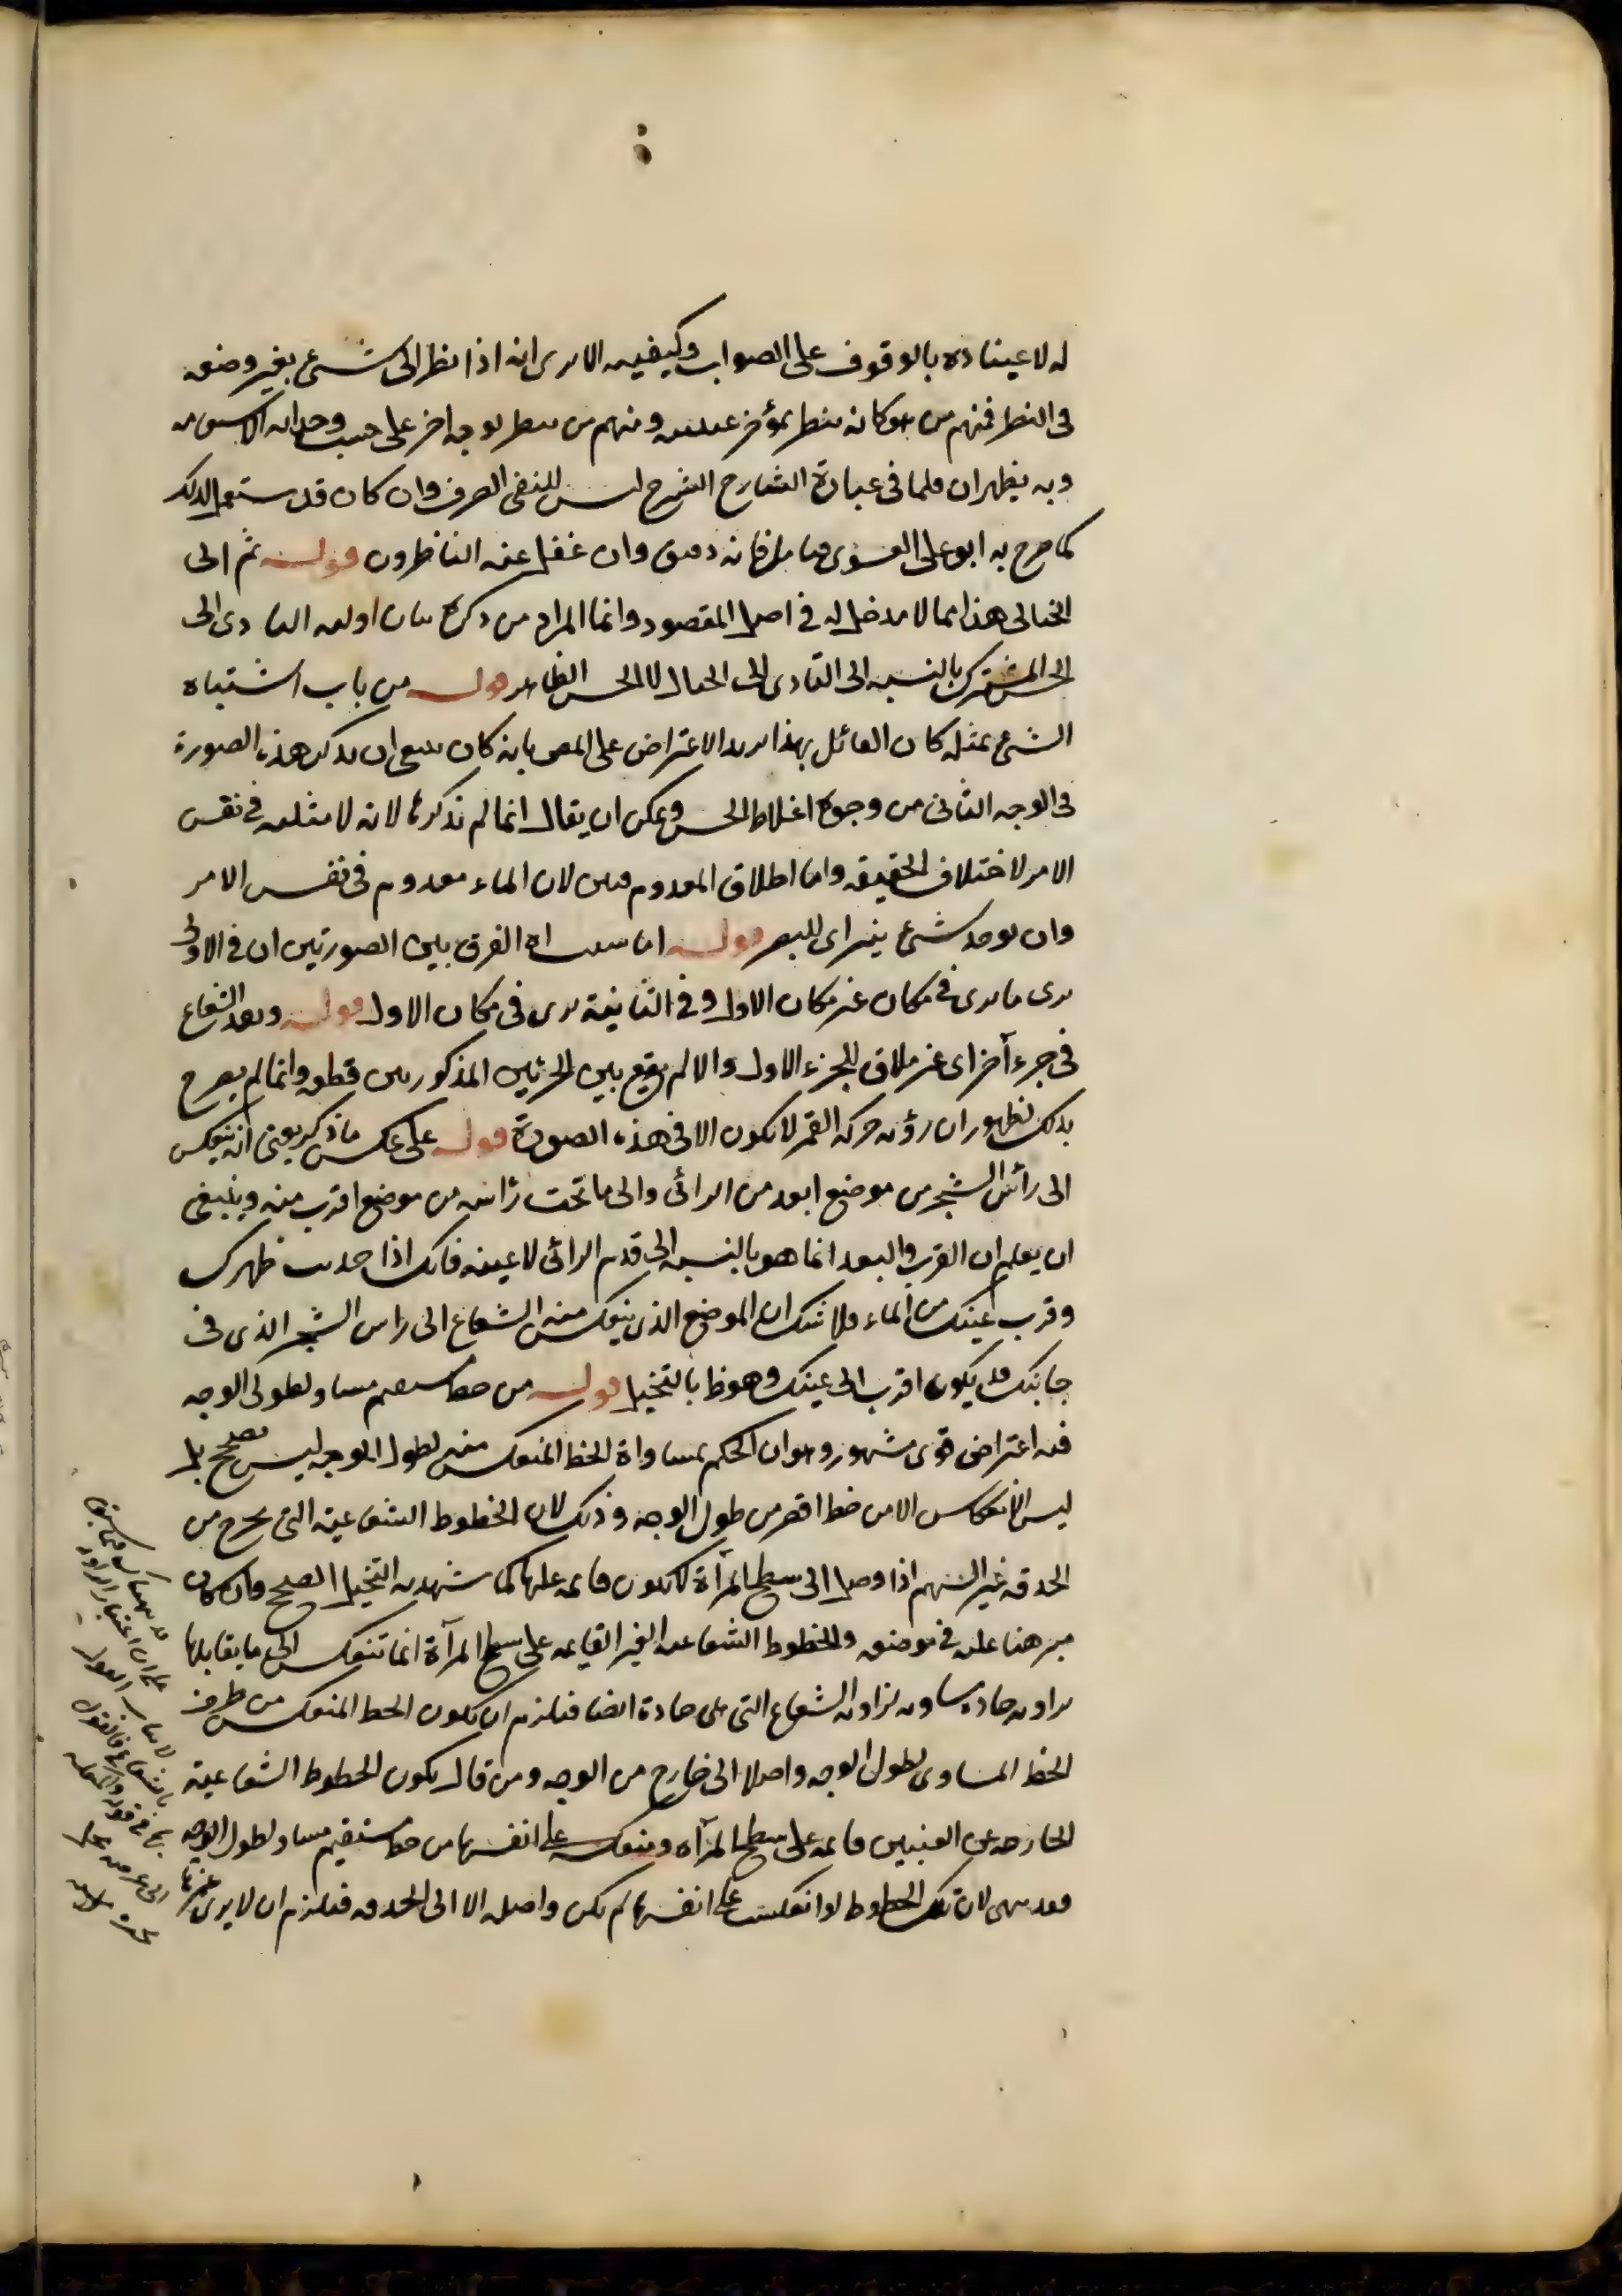 له لاعتياده بالوقوف على الصواب وكيفيته الا يرى انه اذا نظر الى شيء يغير وضعه
فى النظر فمنهم من هو كانه ينظر بمؤخر عينيه ومنهم من ينظر بوجه اخر على حسب وجدانه
وبه يظهر ان قلما فى عبارة الشارح الشرح ليس للنفى الصرف وان كان قد يستعمل لذلك
كما صرح به ابو على الفسوى فانه دقيق وان غفل عنه الناظرون قوله ثم الى
الخيالى هذا مما لا مدخل له فى اصل المقصود وانما المراد من ذكره بيان اولية التادى الى
الحس المشترك بالنسبه الى التادى الى الخيال لا الحس الظاهر قوله من باب اشتباه
الشيء بمثله كان القائل بهذا يريد الاعتراض على المص بانه كان ينبغى ان يذكر هذه الصورة
فى الوجه الثانى من وجوه اغلاط الحس ويمكن ان يقال انما لم نذكره لانه لا مثليه فى نفس
الامر لاختلاف الحقيقه واما اطلاق المعدوم فمن لان الماء معدوم فى نفس الامر
وان يوجد شيء يتراى للبصر قوله اه الفرق بين الصورتين ان فى الاولى
يرى ما يرى فى مكان غير مكان الاول وفى الثانية يرى فى مكان الاول قوله وبعد الشعاع
فى جزء آخر اى غير ملاق للجزء الاول والا لم يقع بين الجزئين المذكورين قطعه وانما لم يصرح
بذلك لظهور ان رؤيه حركه القمر لا يكون الا فى هذه الصورة قوله على عكس ما ذكر يعنى انه ينعكس
الى رأس الشجر من موضع ابعد من الرائى والى ما تحت رأسه من موضع اقرب منه وينبغى
ان يعلم ان القرب والبعد انما هو بالنسبه الى قدم الرائى لا عينه فانك اذا حدبت ظهرك
وقرب عينك من الماء فلا شك ان الموضع الذى ينعكس منه الشعاع الى راس الشجر الذى فى
جانبك قد يكون اقرب الى عينك وهو ظ بالتخيل قوله من خط مستقيم مساو لطول الوجه
فيه اعتراض قوى مشهور وهو ان الحكم بمساواة الخط المنعكس منه لطول الوجه ليس بصحيح بل
ليس الانعكاس الا من خط اقصر من طول الوجه وذلك لان الخطوط الشعاعية التى يخرج من
الحدقه غير السهم اذا وصل الى سطح المرآة لا يكون قايمه عليها كما يشهد به التخيل الصحيح وان كان
مبرهنا عليه فى موضعه والخطوط الشعاعيه الغير القايمه على سطح المرآة انما تنعكس الى ما يقابلها
بزاويه حاده مساويه لزاويه الشعاع التى هى حادة ايضا فيلزم ان يكون الخط المنعكس من طرف
الخط المساوى لطول الوجه واصلا الى خارج من الوجه ومن قال يكون الخطوط الشعاعية
الخارجه عن العينين قايمه على سطح المرآه وينعكس على انفسها من خط مستقيم مساو لطول الوجه
فقد سهى لان تلك الخطوط لو انعكست على انفسها لم تكن واصله الا الى الحدقه فيلزم ان لا يرى غيرها